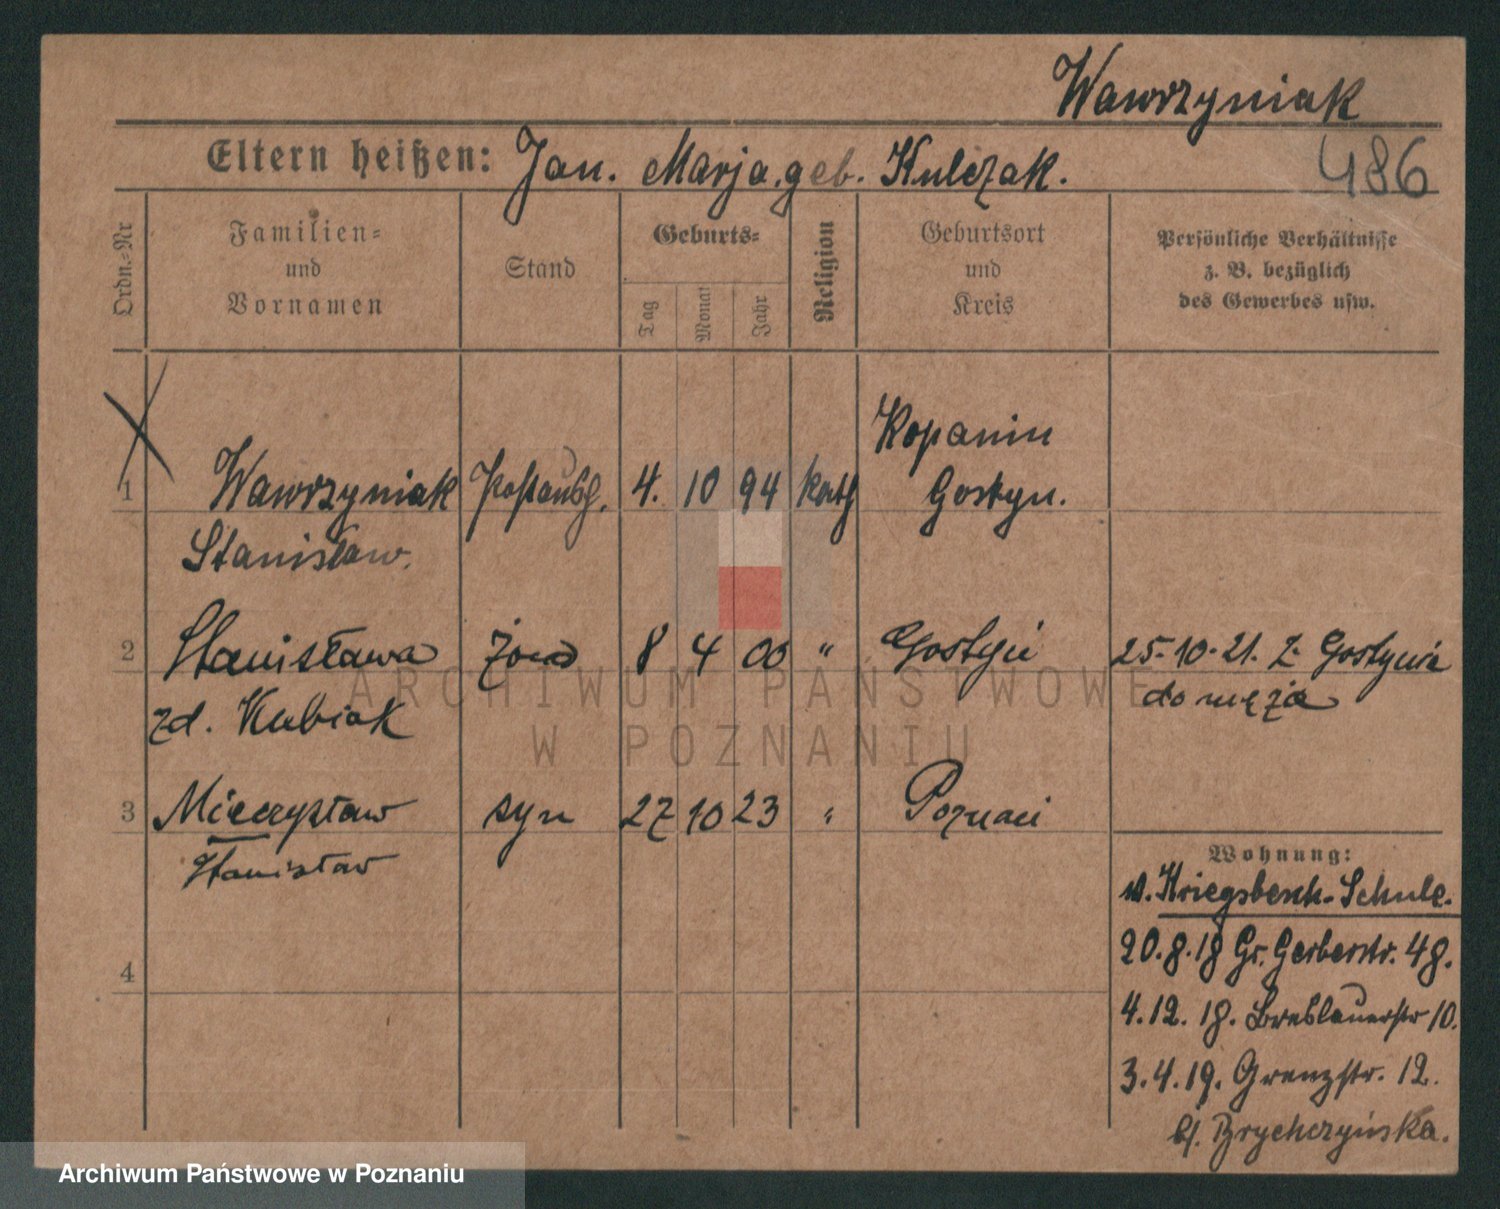 Wawrzyniak
Eltern heißen: Jan. Marja. geb. Kulczak.
486
Ordn.-Nr
Familien-
und
Vornamen
Stand
Geburts-
Tag
Monat
Jahr
Religion
Geburtsort
und
Kreis
Persönliche Verhältnisse
z. B. bezüglich
des Gewerbes usw.
Kopanin
1 Wawrzyniak Postaush. 4. 10 94 kath Gostyn.
Stanisław.
2 Stanisława żona 8 4 00 " Gostyń 25-10-21. z Gostynia
zd. Kubiak do męża
3 Mieczysław syn 27 10 23 " Poznań
Stanisław
Wohnung:
w. Kriegsbesch.-Schule.
20.8.18 Gr. Gerberstr. 48.
4
4.12.18. Breslauerstr 10.
3.4.19. Grenzstr. 12.
b/. Brychczyńska.
ARCHIWUM PAŃSTWOWE
W POZNANIU
Archiwum Państwowe w Poznaniu